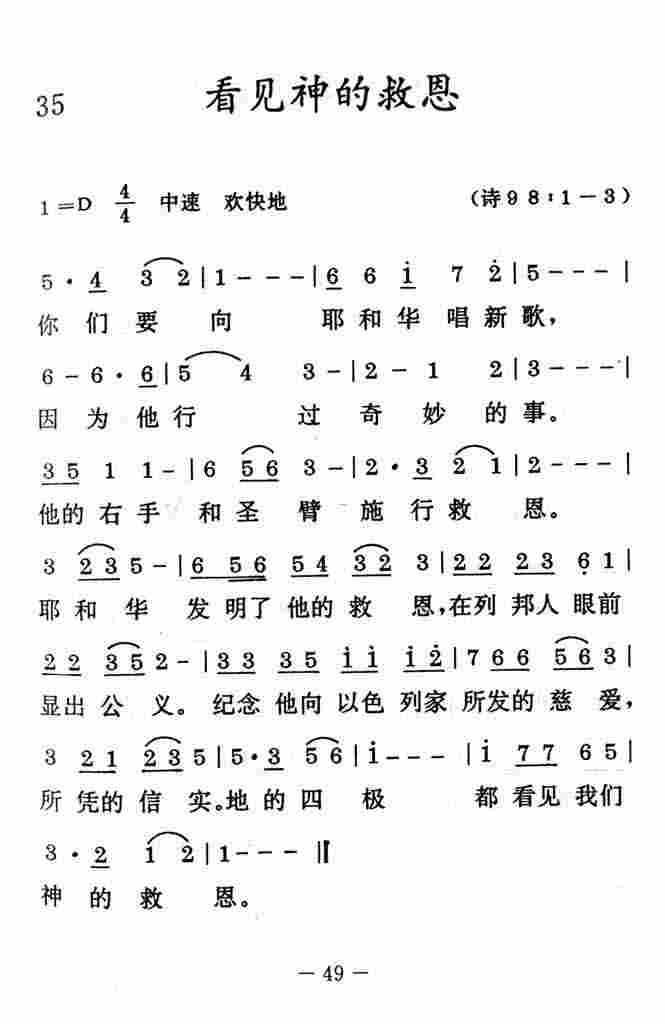 35
看见神的救恩
1=D 4/4 中速 欢快地 (诗98:1-3)
5· 4 3 2|1---|6 6 i 7 2|5---|
你们要向 耶和华唱新歌,
6-6·6|5 4 3-|2-1 2|3---|
因为他行 过奇妙的事。
35 1 1-|6 56 3-|2·3 21|
他的右手 和圣臂 施行救恩。
3 235-|6 56 54 32|3 22 23 61|
耶和华 发明了他的救恩,在列邦人眼前
22 352-|33 35 ii i2|766 563|
显出公义。纪念他向以色列家所发的慈爱,
3 21 235|5·3 56|i---|i 77 65|
所凭的信实。地的四极 都看见我们
3·2 i 2|1---‖
神的救恩。
－49－